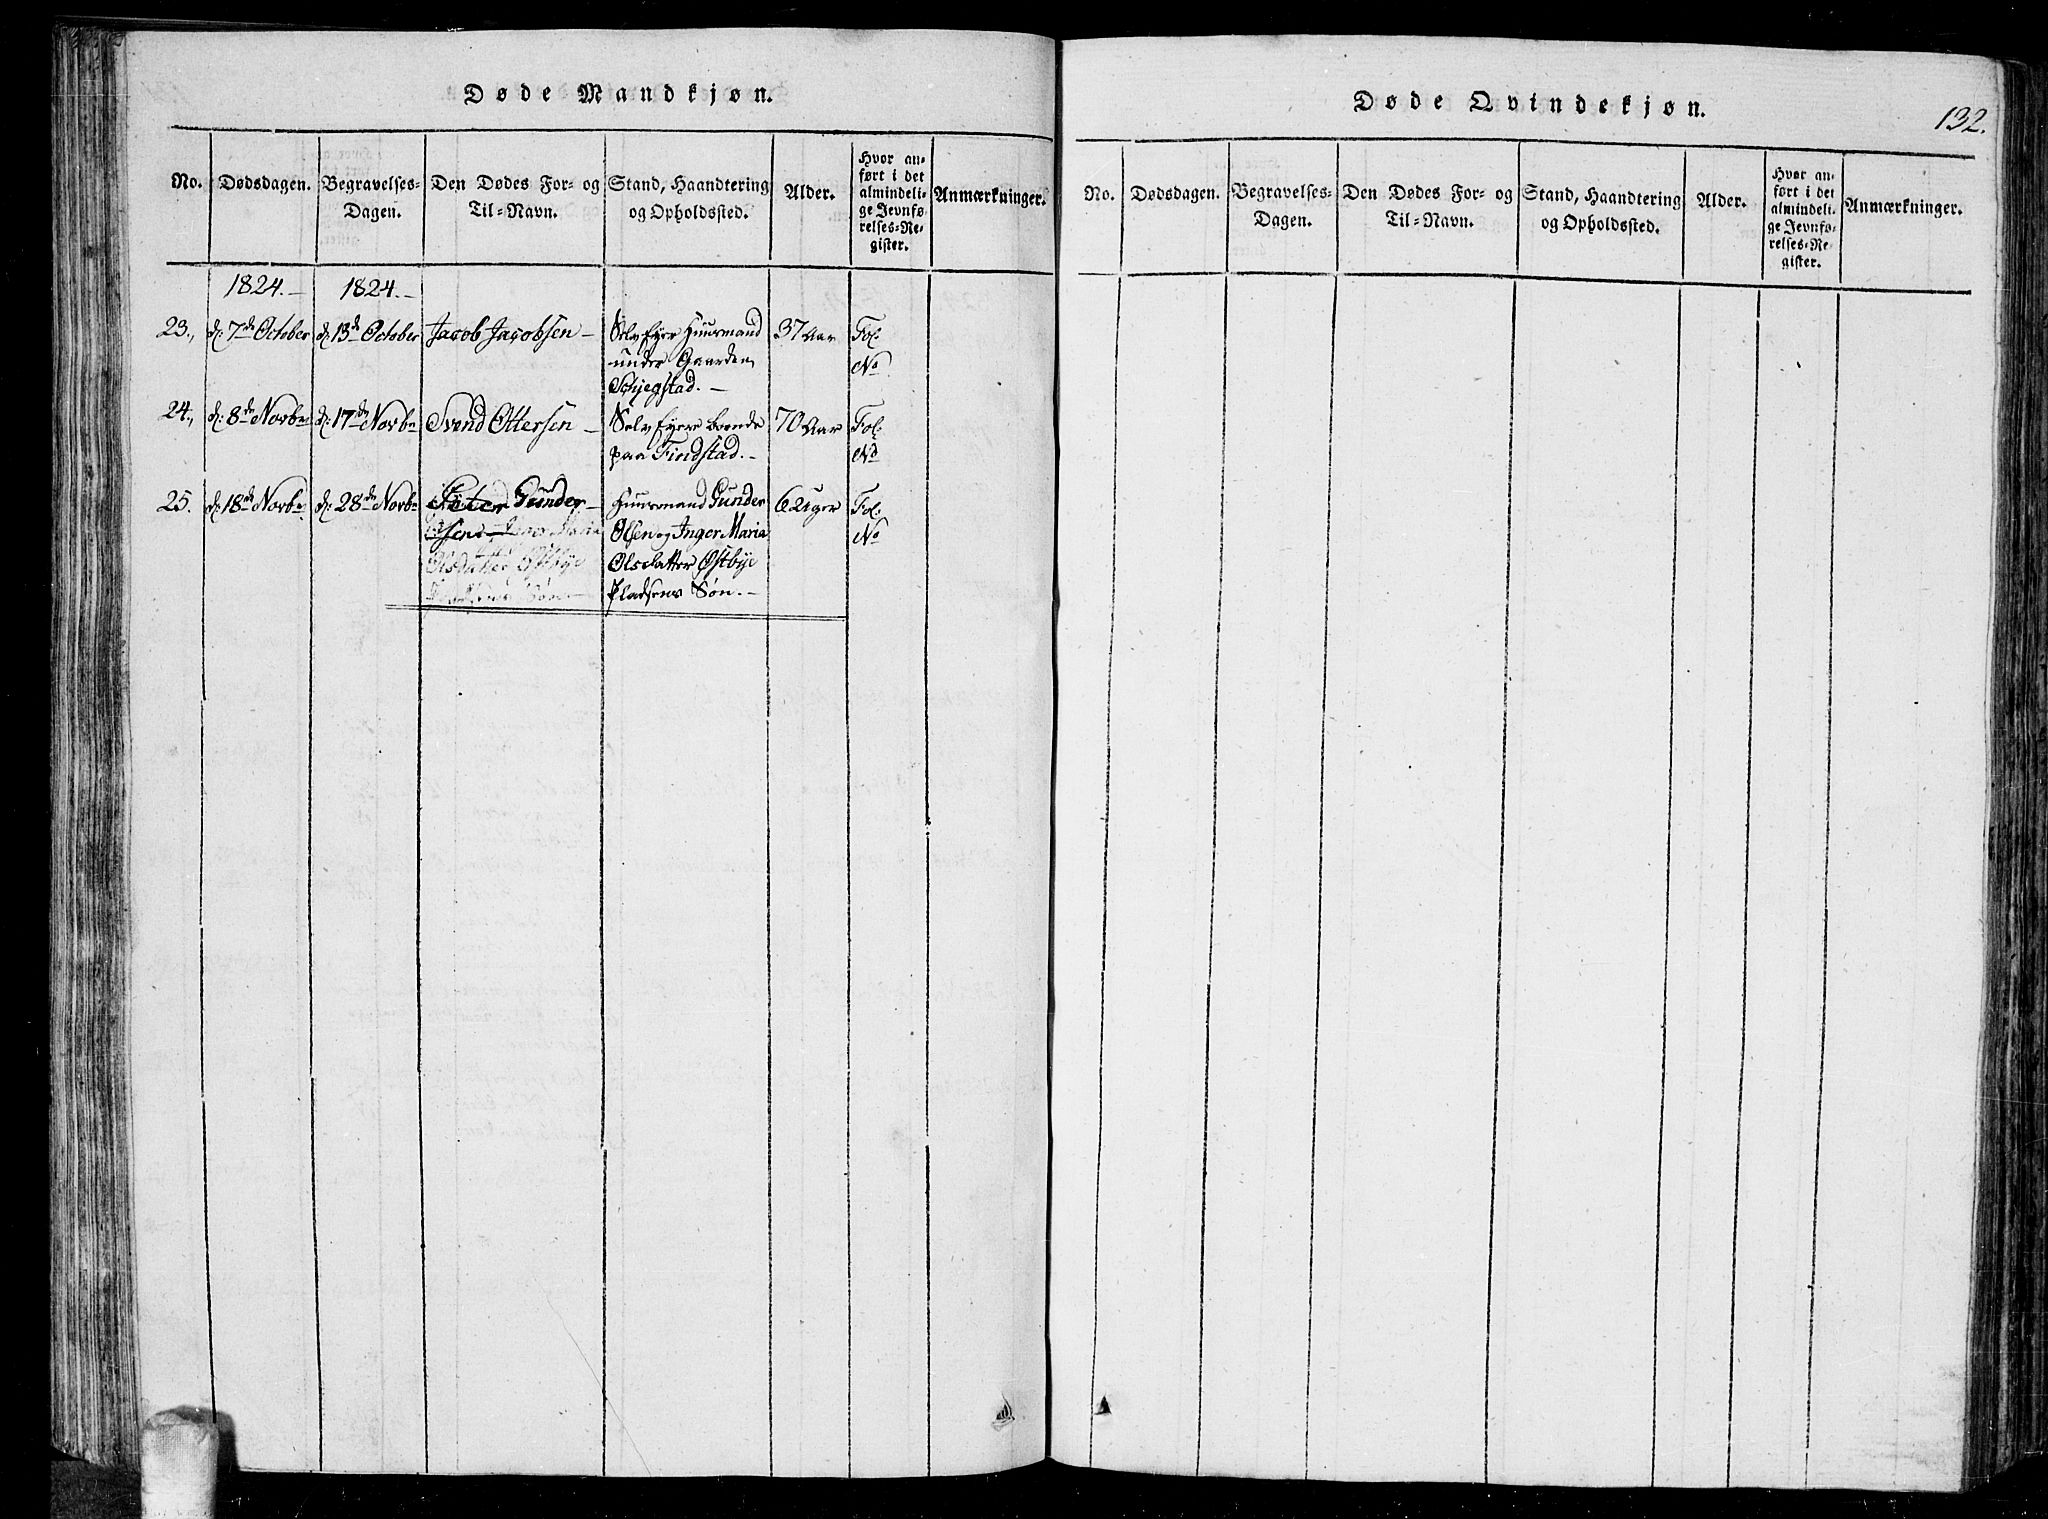 Døde Mandkjøn.
No. Dødsdagen. Begravelses-Dagen. Den Dødes For- og Til-Navn. Stand, Haandtering og Opholdssted. Alder. Hvor anført i det almindelige Jevnførelses-Register. Anmærkninger.
1824.– 1824.–
23., d: 7de October d: 13de October Jacob Jacobsen – Selv Eyer Huusmand 37 Aar Fol:
under Gaarden No
Schjegstad. –
24., d: 8de Novbr d: 17de Novbr Svend Ottersen – Selv Eyere boende 70 Aar Fol:
paa Findstad. – No
25. d: 18de Novbr d: 28de Novbr Peter Gunder– Huusmand Gunder 6 Uger Fol:
sen Inger Maria Olsen og Inger Maria No
Olsdatter Østbye Olsdatter Østbye
Søn – Pladsens Søn. –
Døde Qvindekjøn.
132.
No. Dødsdagen. Begravelses-Dagen. Den Dødes For- og Til-Navn. Stand, Haandtering og Opholdssted. Alder. Hvor anført i det almindelige Jevnførelses-Register. Anmærkninger.